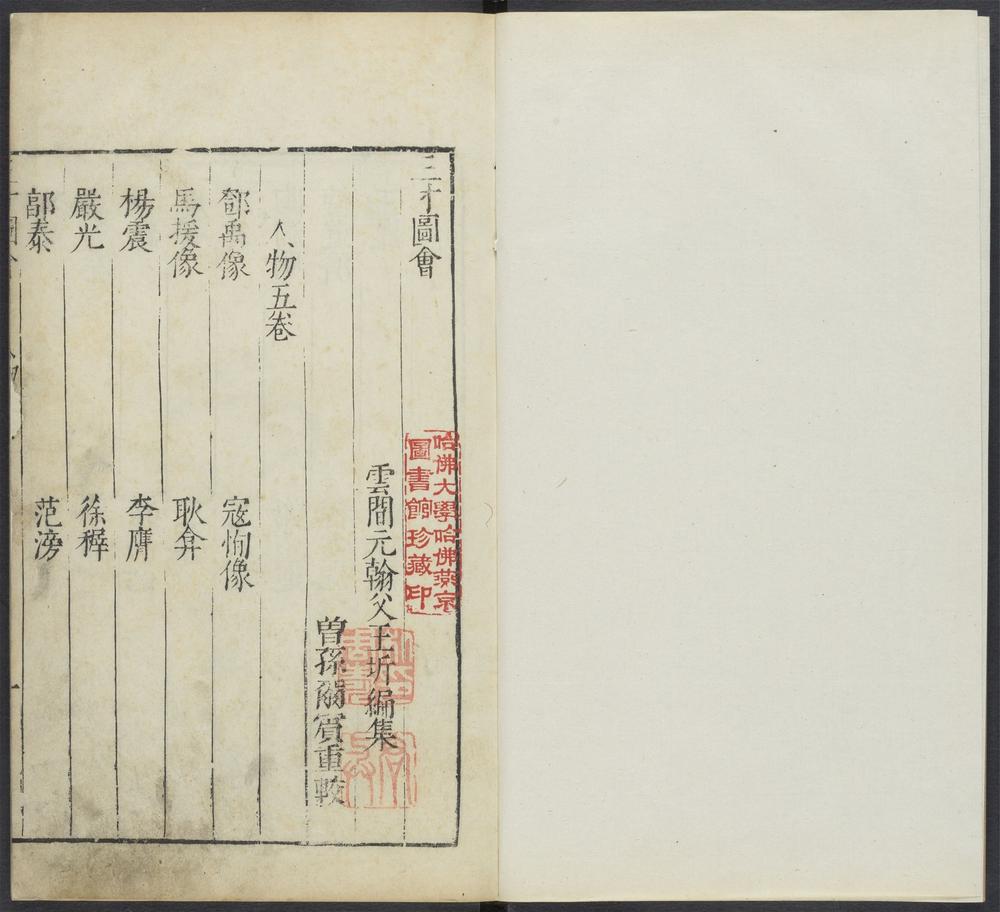 三才圖會
雲間元翰父王圻編集
曾孫爾賓重較
人物五卷
鄧禹像 寇恂像
馬援像 耿弇
楊震 李膺
嚴光 徐穉
郭泰 范滂
哈佛大學哈佛燕京
圖書館珍藏印